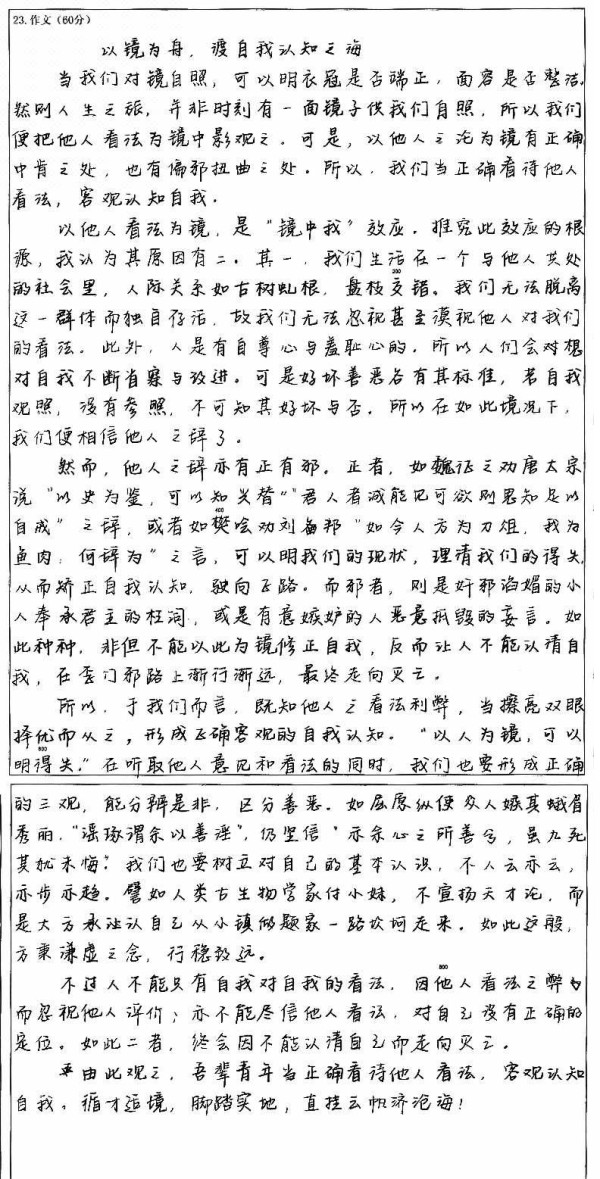 23.作文（60分）
以镜为舟，渡自我认知之海
当我们对镜自照，可以明衣冠是否端正，面容是否整洁。
然则人生之旅，并非时刻有一面镜子供我们自照，所以我们
便把他人看法为镜中影观之。可是，以他人之论为镜有正确
中肯之处，也有偏邪扭曲之处。所以，我们当正确看待他人
看法，客观认知自我。
以他人看法为镜，是“镜中我”效应。推究此效应的根
源，我认为其原因有二。其一，我们生活在一个与他人共处
200
的社会里，人际关系如古树虬根，盘枝交错。我们无法脱离
这一群体而独自存活，故我们无法忽视甚至漠视他人对我们
的看法。此外，人是有自尊心与羞耻心的，所以人们会对想
对自我不断省察与改进。可是好坏善恶各有其标准，若自我
观照，没有参照，不可知其好坏与否。所以在如此境况下，
我们便相信他人之辞了。
然而，他人之辞亦有正有邪。正者，如魏征之劝唐太宗
说“以史为鉴，可以知兴替”“君人者诚能见可欲则思知足以
400
自戒”之辞，或者如樊哙劝刘邦“如今人方为刀俎，我为
鱼肉，何辞为”之言，可以明我们的现状，理清我们的得失，
从而矫正自我认知，驶向正路。而邪者，则是奸邪谄媚的小
人奉承君主的枉词，或是有意嫉妒的人恶意抵毁的妄言。如
此种种，非但不能以此为镜修正自我，反而让人不能认清自
我，在歪门邪路上渐行渐远，最终走向灭亡。
所以，于我们而言，既知他人之看法利弊，当擦亮双眼
择优而从之，形成正确客观的自我认知。“以人为镜，可以
600
明得失。”在听取他人意见和看法的同时，我们也要形成正确
的三观，能分辨是非，区分善恶。如屈原纵使众人嫉其蛾眉
秀丽，“谣诼谓余以善淫”，仍坚信“亦余心之所善兮，虽九死
其犹未悔”。我们也要树立对自己的基本认识，不人云亦云，
亦步亦趋。譬如人类古生物学家付小妹，不宣扬天才论，而
是大方承认自己从小镇做题家一路坎坷走来。如此这般，
方秉谦虚之念，行稳致远。
800
不过人不能只有自我对自我的看法，因他人看法之弊
而忽视他人评价；亦不能尽信他人看法，对自己没有正确的
定位。如此二者，终会因不能认清自己而走向灭亡。
由此观之，吾辈青年当正确看待他人看法，客观认知
自我。循才适境，脚踏实地，直挂云帆济沧海！